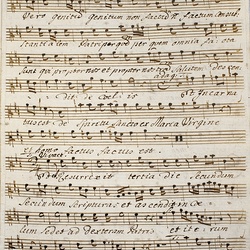 Vero genitum genitum non factum factum consub
stantialem Patri per quem per quem omnia fa: cta
sunt qui propter nos et propter nos salutem descen
dit de Coelis et Incarna
tus est de Spiritu Sancto ex Maria Virgine
et homo factus factus est.
Resurrexit tertia die Secundum
Secundum Scripturas et ascendit in coe
lum Sedet ad dexteram Patris et ite: rum